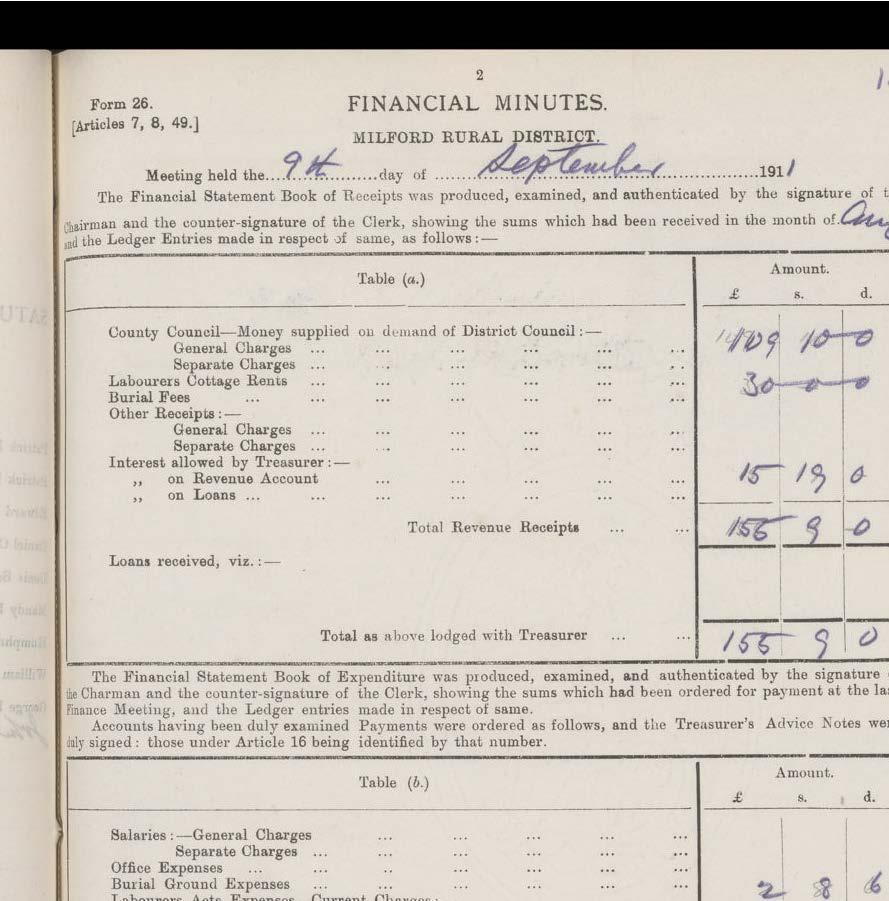 2
Form 26.
FINANCIAL MINUTES.
[Articles 7, 8, 49.]
MILFORD RURAL DISTRICT.
Meeting held the...9th...day of ...September...1911
The Financial Statement Book of Receipts was produced, examined, and authenticated by the signature of t
Chairman and the counter-signature of the Clerk, showing the sums which had been received in the month of
and the Ledger Entries made in respect of same, as follows:—
Table (a.)
Amount.
£ s. d.
County Council—Money supplied on demand of District Council:—
General Charges ... ... ... ... ... ... 109 10 0
Separate Charges ... ... ... ... ... ...
Labourers Cottage Rents ... ... ... ... ... 30 0 0
Burial Fees ... ... ... ... ... ...
Other Receipts:—
General Charges ... ... ... ... ... ...
Separate Charges ... ... ... ... ... ...
Interest allowed by Treasurer:—
„ on Revenue Account ... ... ... ... ... 15 19 0
„ on Loans ... ... ... ... ... ...
Total Revenue Receipts ... ... 155 9 0
Loans received, viz.:—
Total as above lodged with Treasurer ... ... 155 9 0
The Financial Statement Book of Expenditure was produced, examined, and authenticated by the signature
the Charman and the counter-signature of the Clerk, showing the sums which had been ordered for payment at the la
Finance Meeting, and the Ledger entries made in respect of same.
Accounts having been duly examined Payments were ordered as follows, and the Treasurer's Advice Notes wer
duly signed: those under Article 16 being identified by that number.
Table (b.)
Amount.
£ s. d.
Salaries:—General Charges ... ... ... ... ...
Separate Charges ... ... ... ... ... ...
Office Expenses ... ... ... ... ... ...
Burial Ground Expenses ... ... ... ... ... ... 2 8 6
Labourers Acts Expenses, Current Charges: